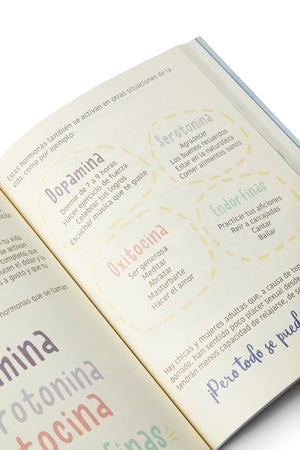 Estas hormonas también se activan en otras situaciones de la
vida, como por ejemplo:
Dopamina
Dormir de 7 a 9 horas
Hacer ejercicio de fuerza
Celebrar tus logros
Escuchar música que te guste
Serotonina
Agradecer
Los buenos recuerdos
Estar en la naturaleza
Comer alimentos sanos
Oxitocina
Ser generosa
Meditar
Abrazar
Masturbarte
Hacer el amor
Endorfinas
Practicar tus aficiones
Reír a carcajadas
Cantar
Bailar
Hay chicas y mujeres adultas que, a causa de
borrado, han sentido poco placer sexual desde
tendrán menos capacidad de relajarse, de
¡Pero todo se pued
tu vida,
se activan,
que
el dolor y la
a gusto y que tu
hormonas que se llaman:
mina
rotonina
tocina
rfinas